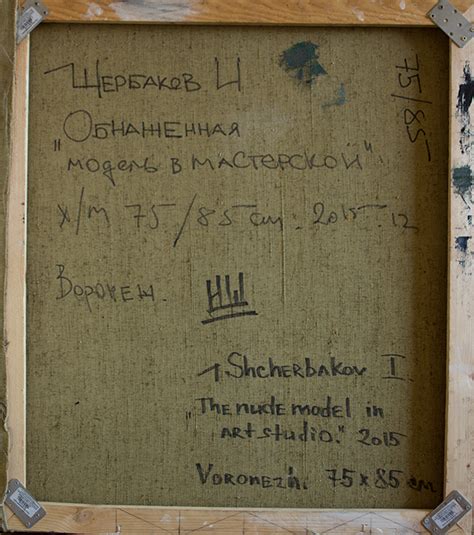 Щербаков И
75/85
„Обнаженная
модель в мастерской"
х/м 75/85 см. 2015. 12
Воронеж.
ИЩ
Shcherbakov I.
„The nude model in
art studio." 2015
Voronezh. 75 x 85 см